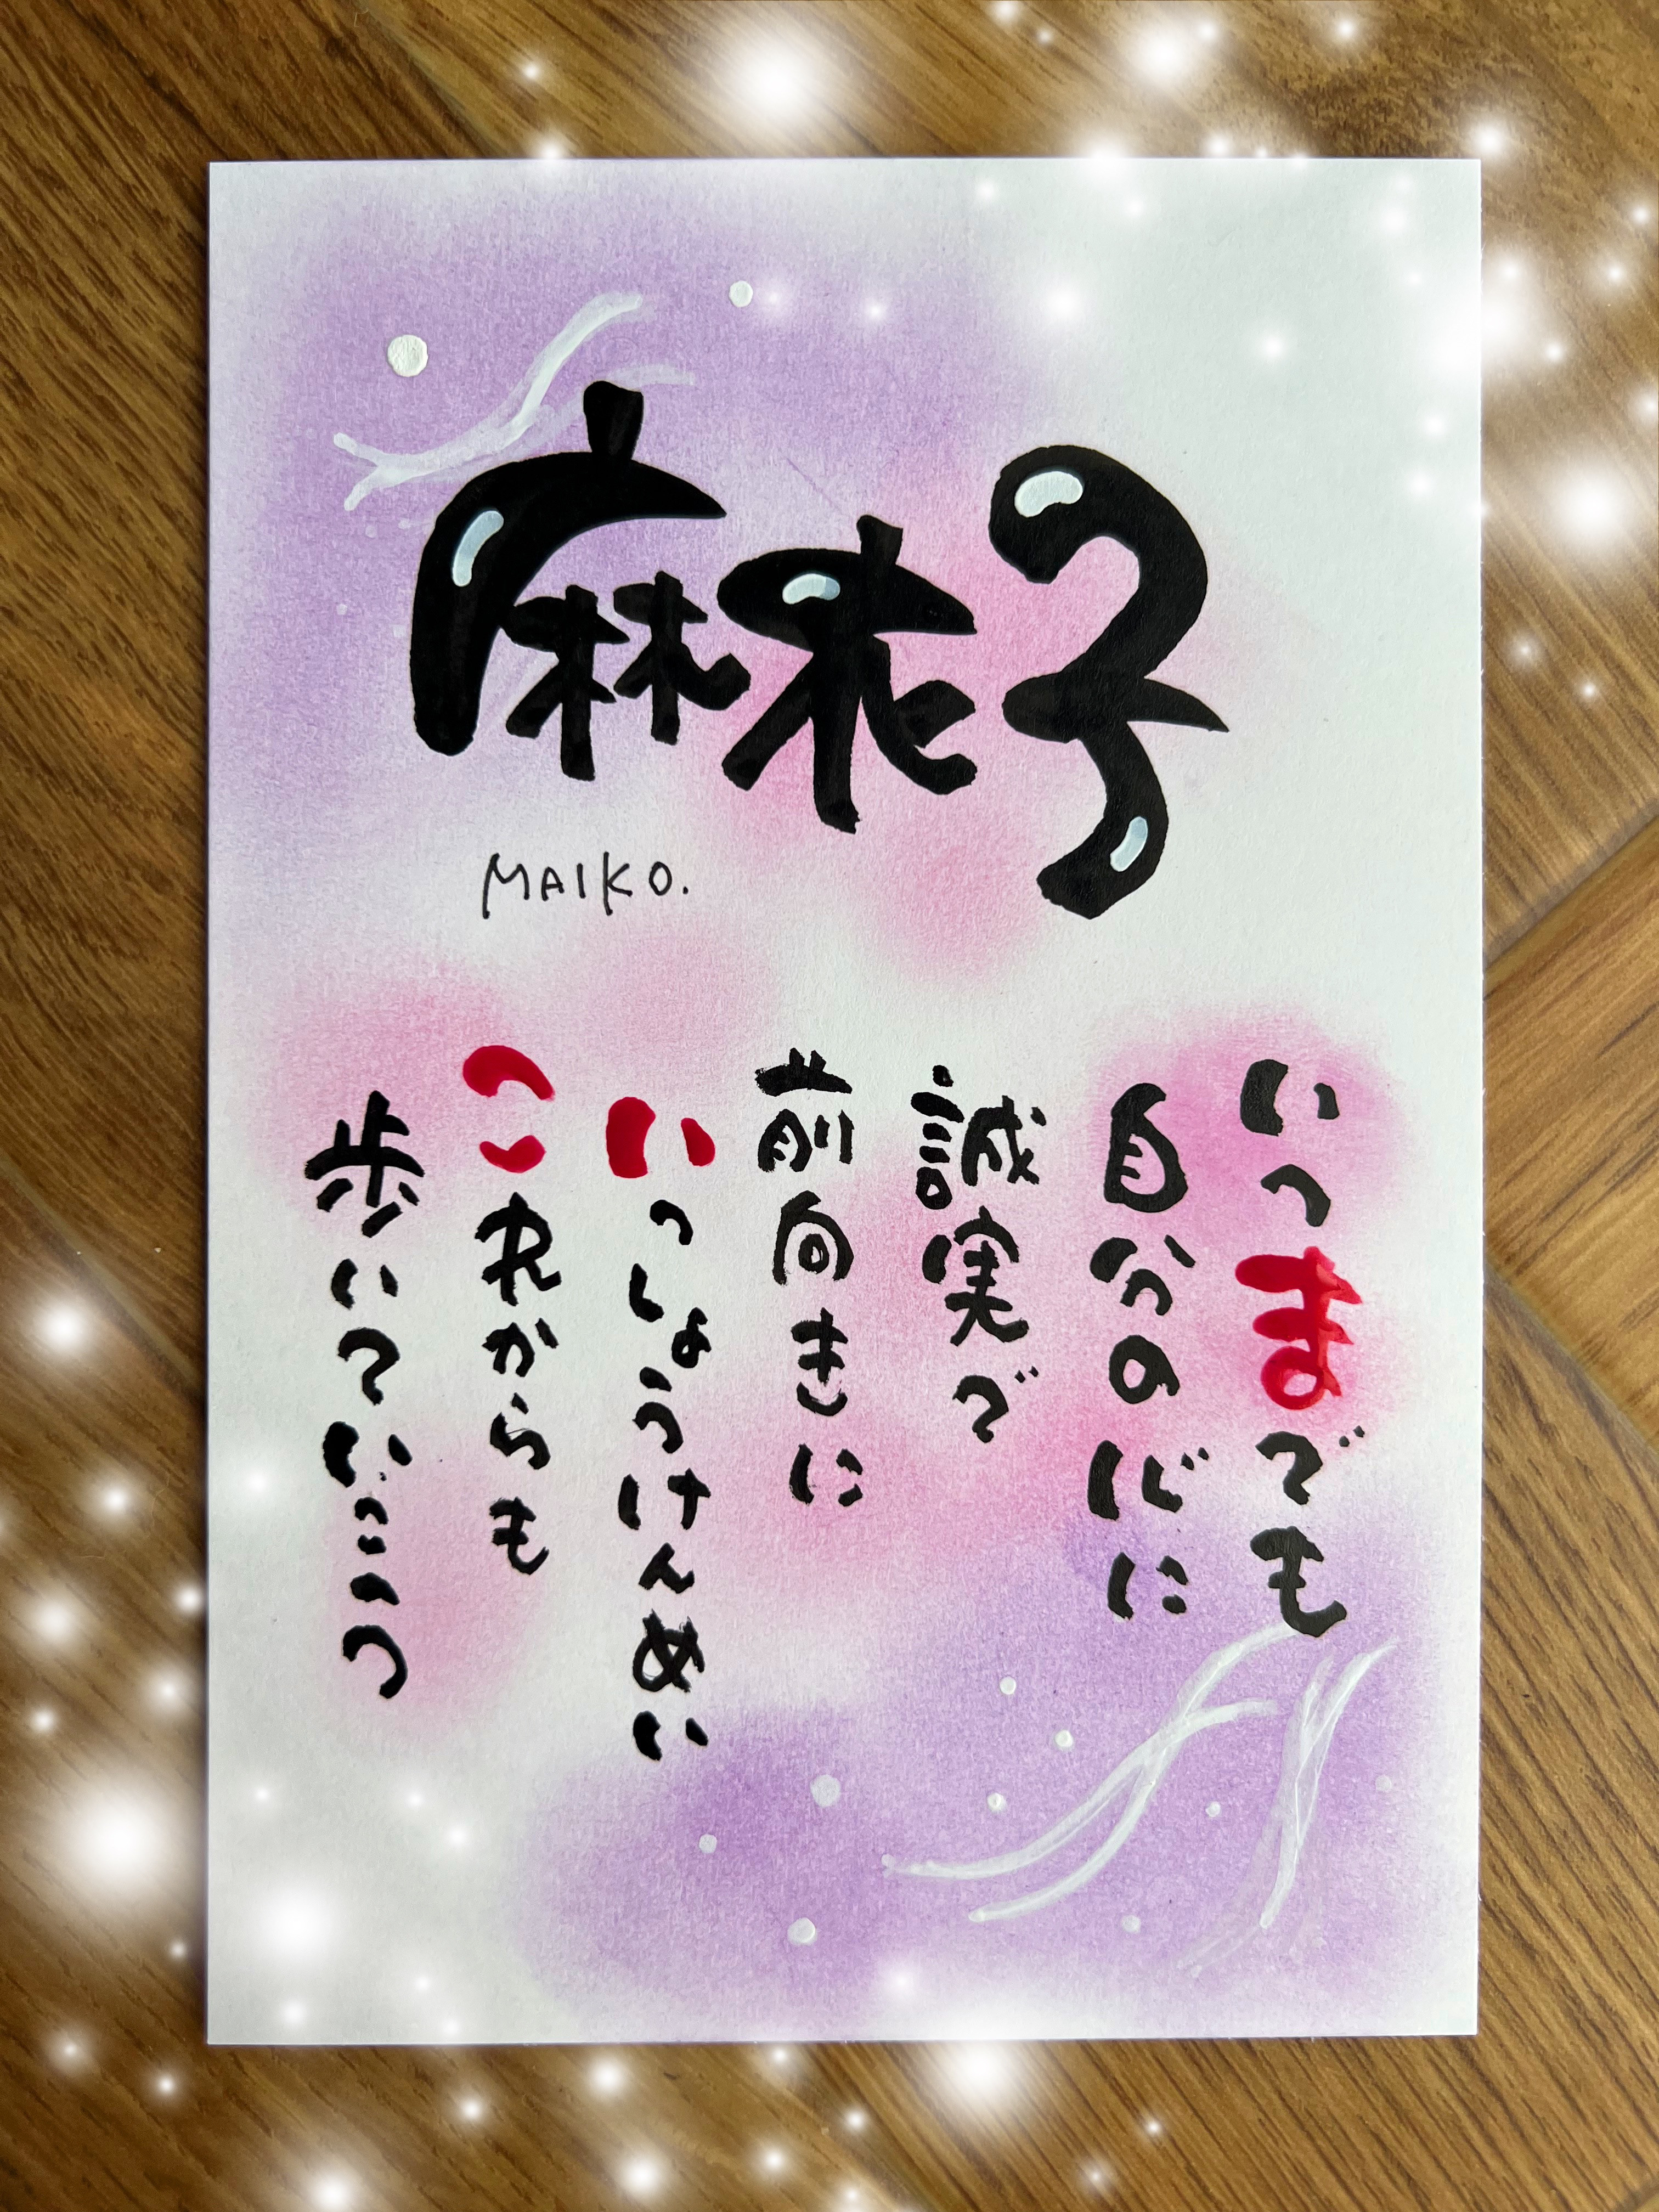 麻衣子
MAIKO.
いつまでも
自分の心に
誠実で
前向きに
いっしょうけんめい
これからも
歩いていこう